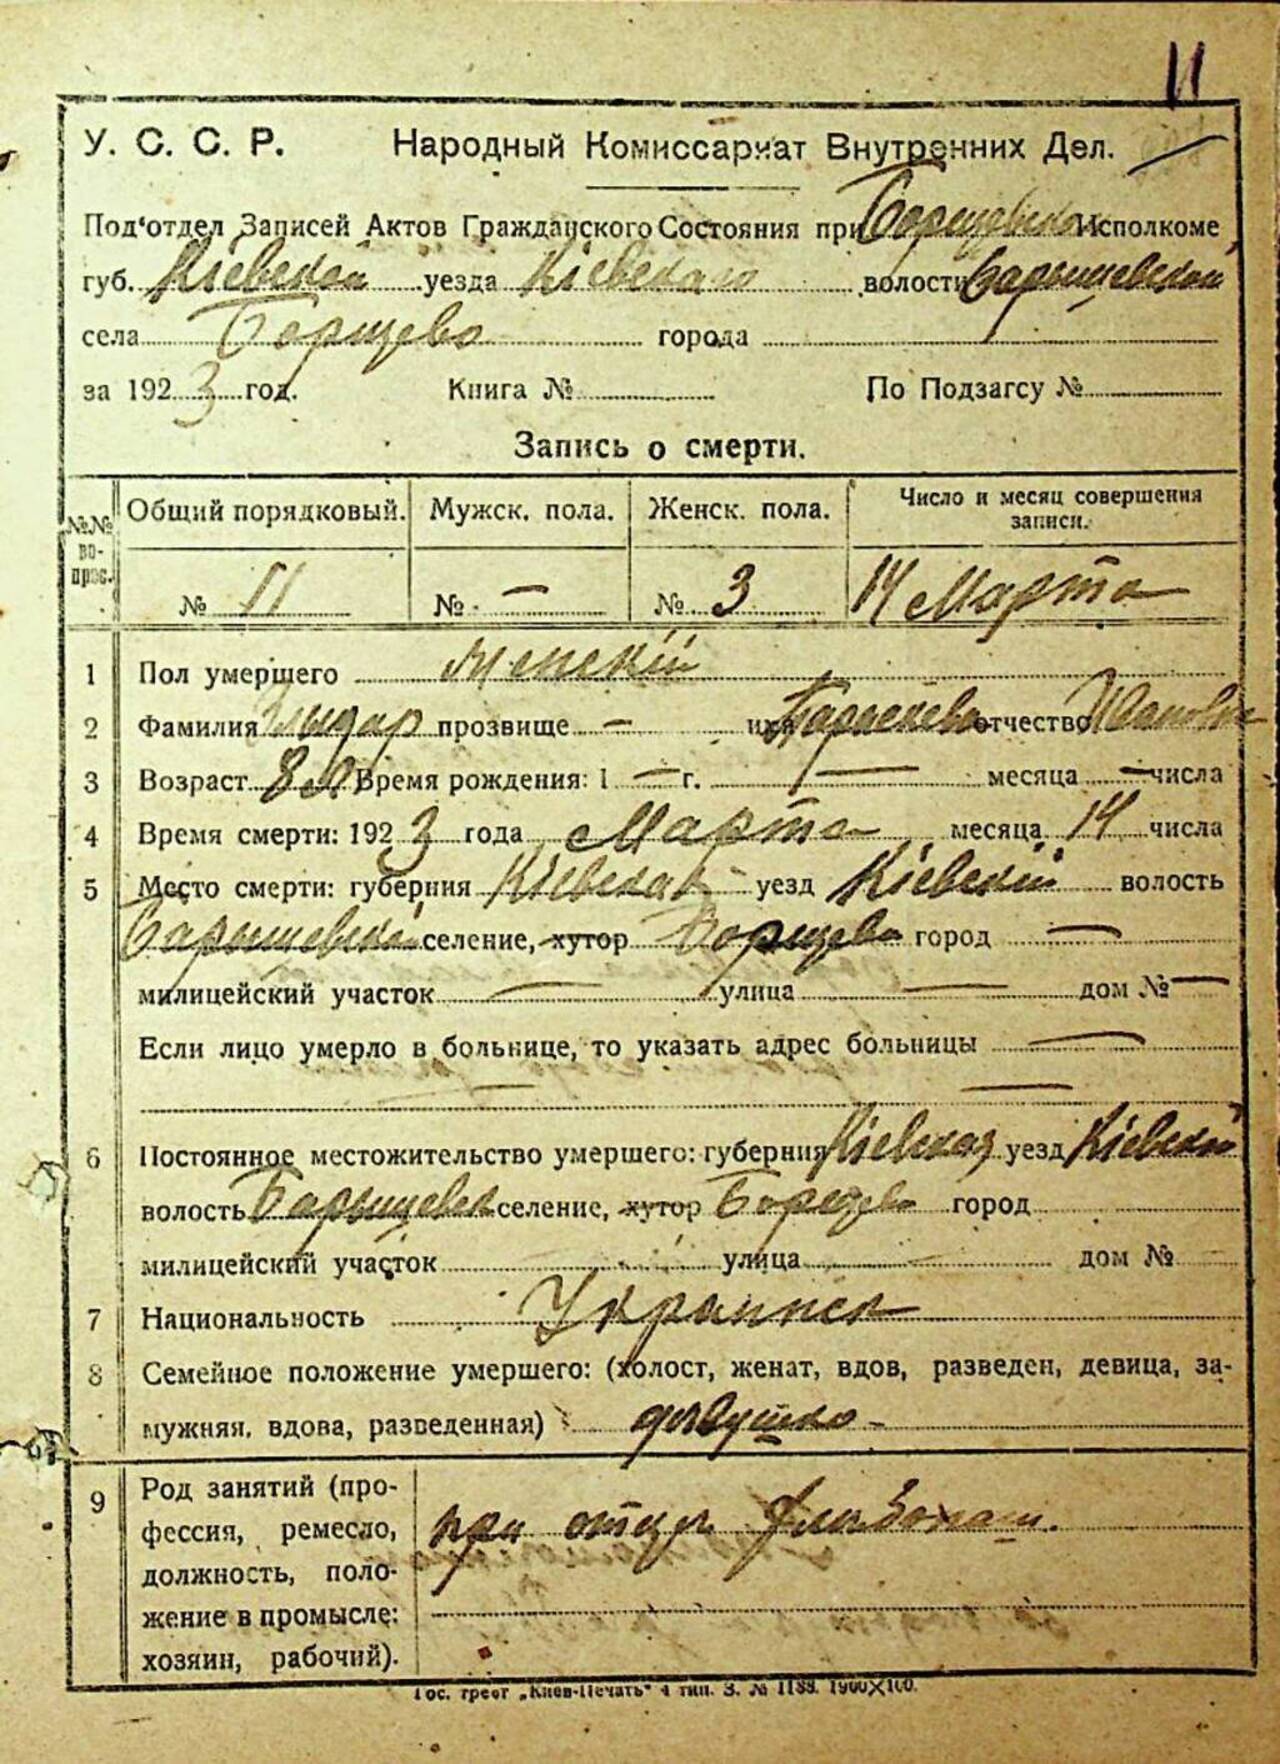 11
У. С. С. Р. Народный Комиссариат Внутренних Дел.
Под'отдел Записей Актов Гражданского Состояния при Исполкоме
губ. Кіевской уезда Кіевскаго волости Барышевской
села Борщево города
за 1923 год. Книга № По Подзагсу №
Запись о смерти.
№№ во-прос. Общий порядковый. Мужск. пола. Женск. пола. Число и месяц совершения записи.
№ 11 № — № 3 14 Марта
1 Пол умершего Женскій
2 Фамилия прозвище — отчество
3 Возраст 8 л Время рождения: 1 — г. — месяца — числа
4 Время смерти: 1923 года Марта месяца 14 числа
5 Место смерти: губерния Кіевская уезд Кіевскій волость
Барышевской селение, хутор Борщево город —
милицейский участок — улица — дом № —
Если лицо умерло в больнице, то указать адрес больницы —
— —
6 Постоянное местожительство умершего: губерния Кіевская уезд Кіевскій
волость Барышевск селение, хутор Борщево город
милицейский участок улица — дом №
7 Национальность Украинск
8 Семейное положение умершего: (холост, женат, вдов, разведен, девица, за-
мужняя, вдова, разведенная)
9 Род занятий (про-
фессия, ремесло, при отце
должность, поло-
жение в промысле:
хозяин, рабочий).
Гос. трест „Киев-Печать" 4 тип. З. № 1188. 1900×100.